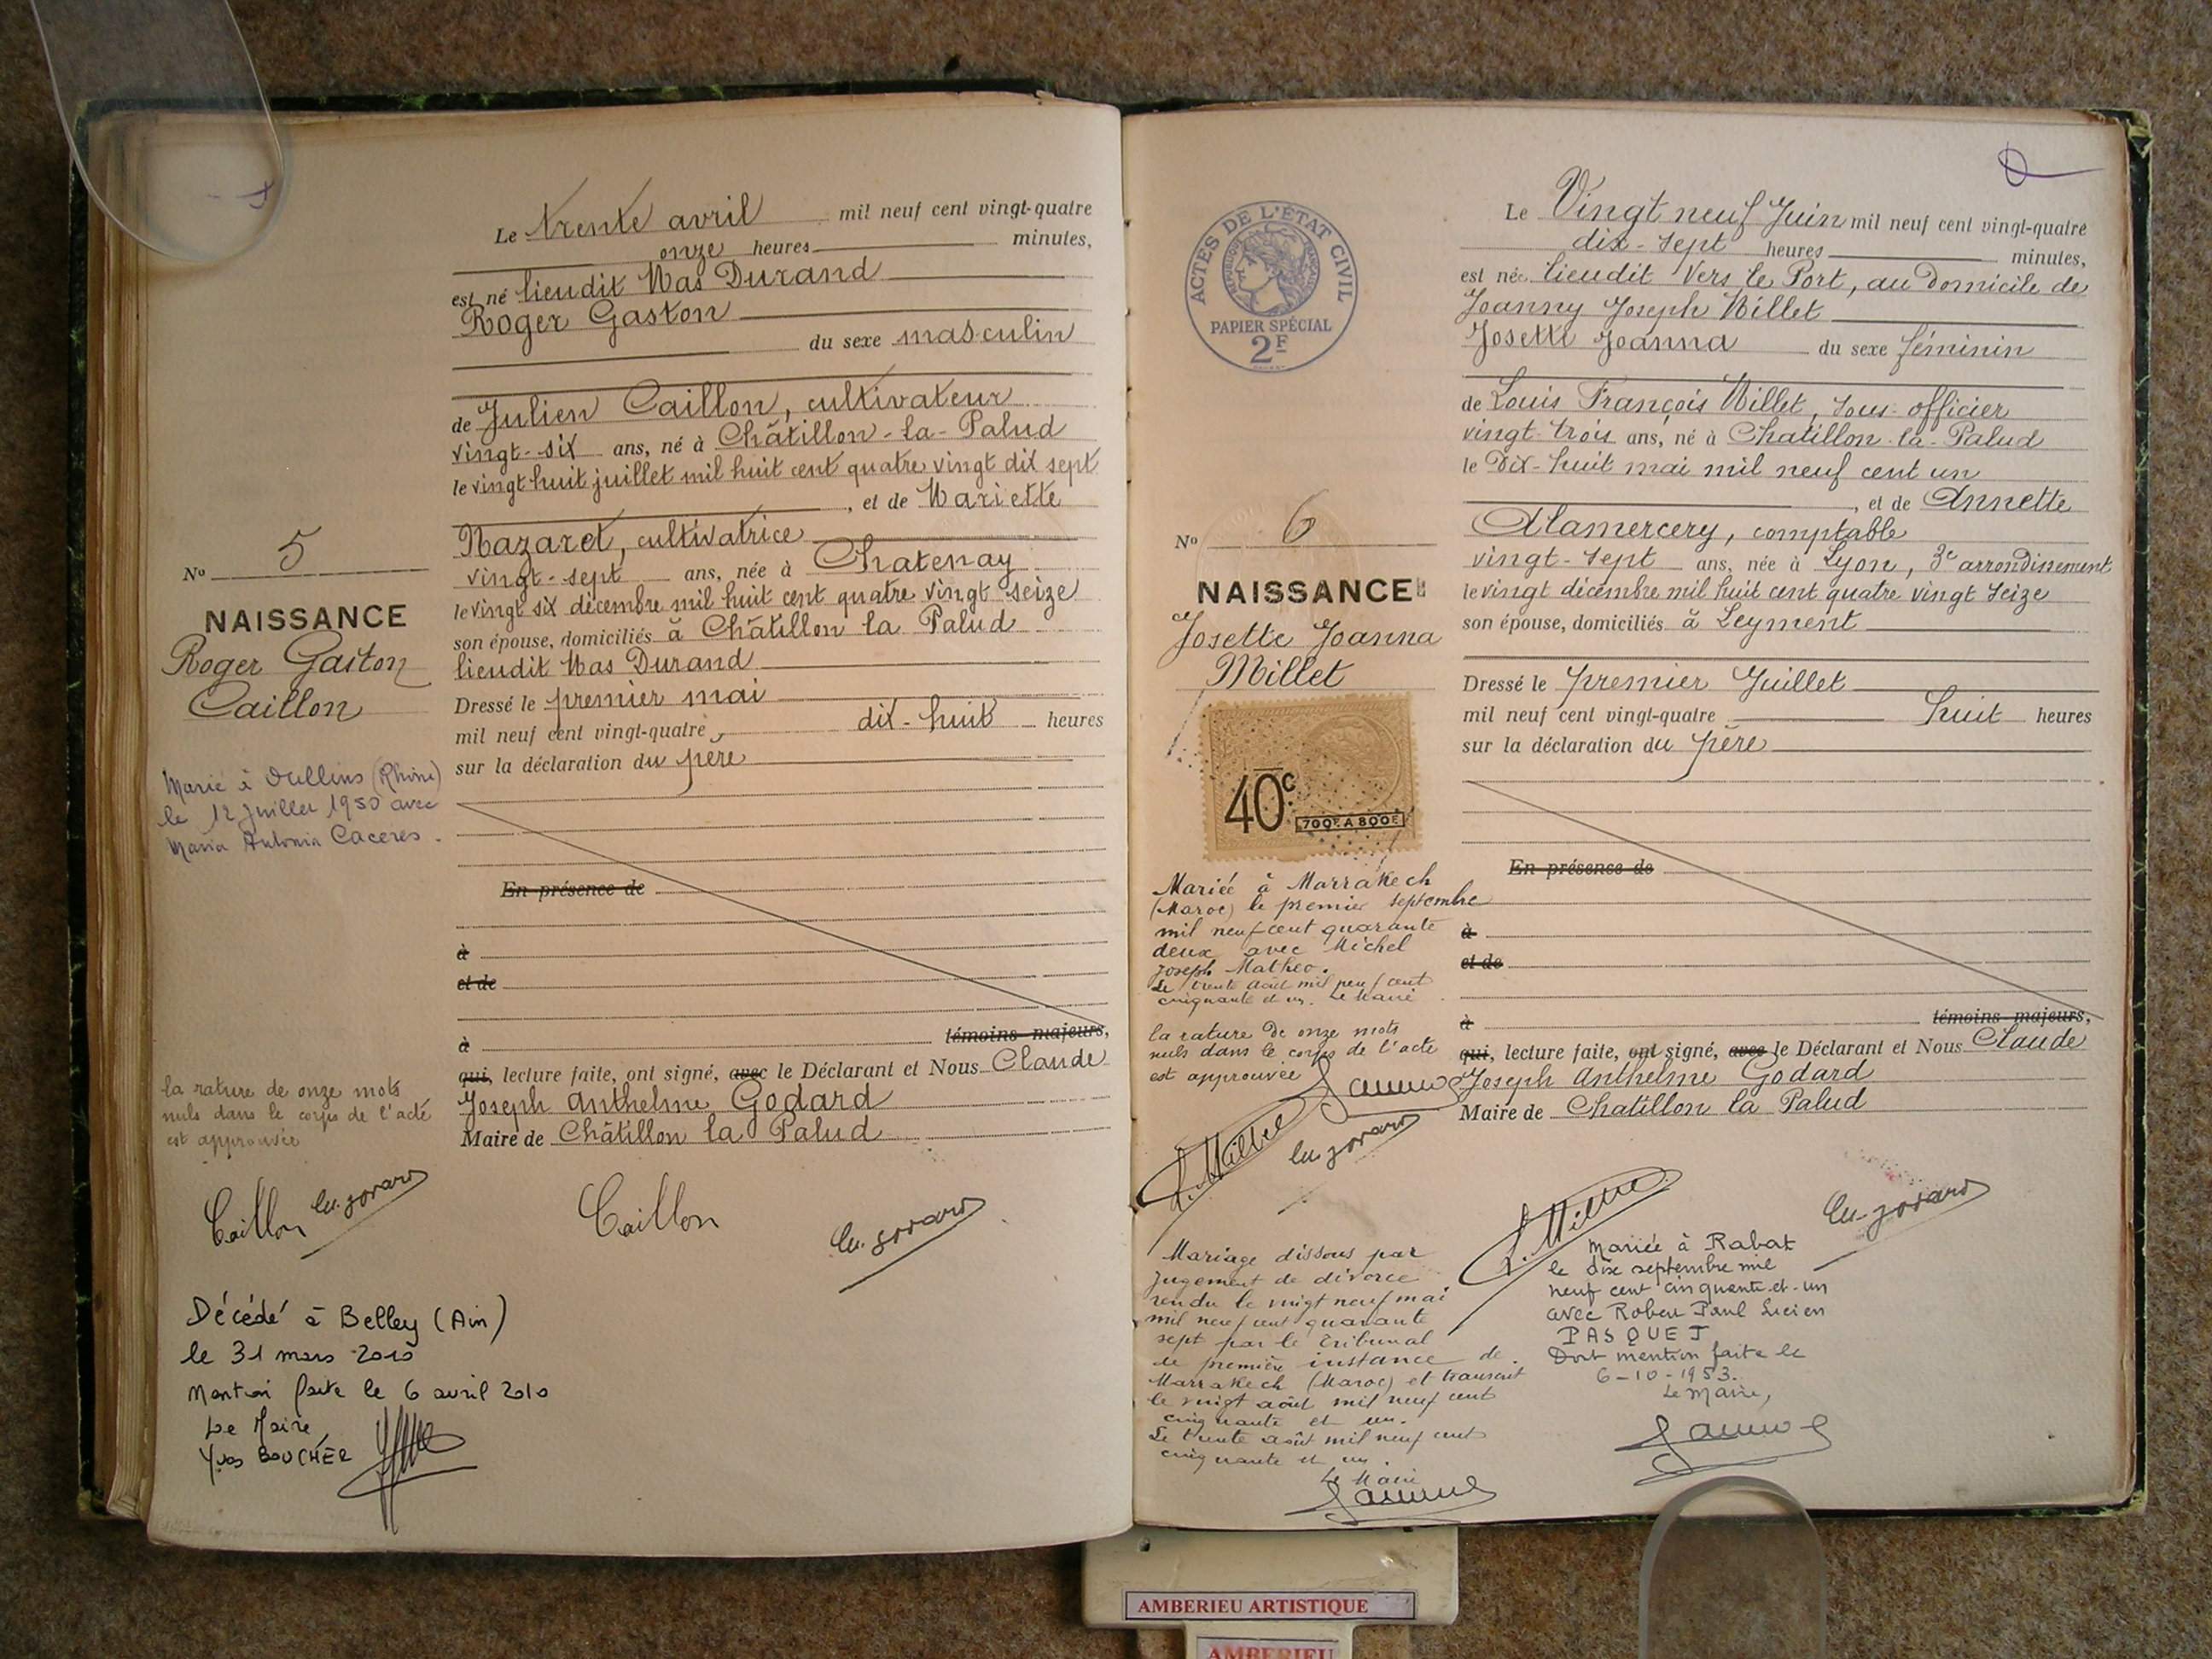 Le trente avril mil neuf cent vingt-quatre
onze heures minutes,
est né lieudit Mas Durand
Roger Gaston
du sexe masculin
de Julien Caillon, cultivateur
vingt-six ans, né à Châtillon-la-Palud
le vingt huit juillet mil huit cent quatre vingt dix sept
, et de Mariette
Nazaret, cultivatrice
vingt-sept ans, née à Chatenay
le vingt six décembre mil huit cent quatre vingt seize
son épouse, domiciliés à Châtillon la Palud
lieudit Mas Durand
Dressé le premier mai
mil neuf cent vingt-quatre, dix-huit heures
sur la déclaration du père
En présence de
à
et de
témoins majeurs,
à
qui, lecture faite, ont signé, avec le Déclarant et Nous Claude
Joseph Anthelme Godard
Maire de Châtillon la Palud
No 5
NAISSANCE
Roger Gaston
Caillon
Marié à Oullins (Rhône)
le 12 Juillet 1950 avec
Maria Antonia Caceres.
la rature de onze mots
nuls dans le corps de l'acte
est approuvée
Caillon
Caillon
Décédé à Belley (Ain)
le 31 mars 2010
Mention faite le 6 avril 2010
Le Maire
Yves BOUCHER
ACTES DE L'ÉTAT CIVIL
PAPIER SPÉCIAL
2F
Le Vingt neuf Juin mil neuf cent vingt-quatre
dix-sept heures minutes,
est née lieudit Vers le Port, au domicile de
Joanny Joseph Millet
Josette Joanna du sexe féminin
de Louis François Millet, sous-officier
vingt-trois ans, né à Chatillon-la-Palud
le dix-huit mai mil neuf cent un
, et de Annette
Alamercery, comptable
vingt-sept ans, née à Lyon, 3e arrondissement
le vingt décembre mil huit cent quatre vingt seize
son épouse, domiciliés à Leyment
Dressé le premier Juillet
mil neuf cent vingt-quatre huit heures
sur la déclaration du père
En présence de
à
et de
à témoins majeurs,
qui, lecture faite, ont signé, avec le Déclarant et Nous Claude
Joseph Anthelme Godard
Maire de Chatillon la Palud
No 6
NAISSANCE
Josette Joanna
Millet
40c
700F A 800F
Mariée à Marrakech
(Maroc) le premier septembre
mil neuf cent quarante
deux avec Michel
Joseph Matheo.
Le trente août mil neuf cent
cinquante et un. Le Maire
la rature de onze mots
nuls dans le corps de l'acte
est approuvée
L. Millet
L. Millet
Mariage dissous par
jugement de divorce
rendu le vingt neuf mai
mil neuf cent quarante
sept par le Tribunal
de première instance de
Marrakech (Maroc) et transcrit
le vingt août mil neuf cent
cinquante et un.
Le trente août mil neuf cent
cinquante et un.
Le Maire
Mariée à Rabat
le dix septembre mil
neuf cent cinquante-et-un
avec Robert Paul Lucien
PASQUET
Dont mention faite le
6-10-1953.
Le Maire,
AMBERIEU ARTISTIQUE
AMBERIEU